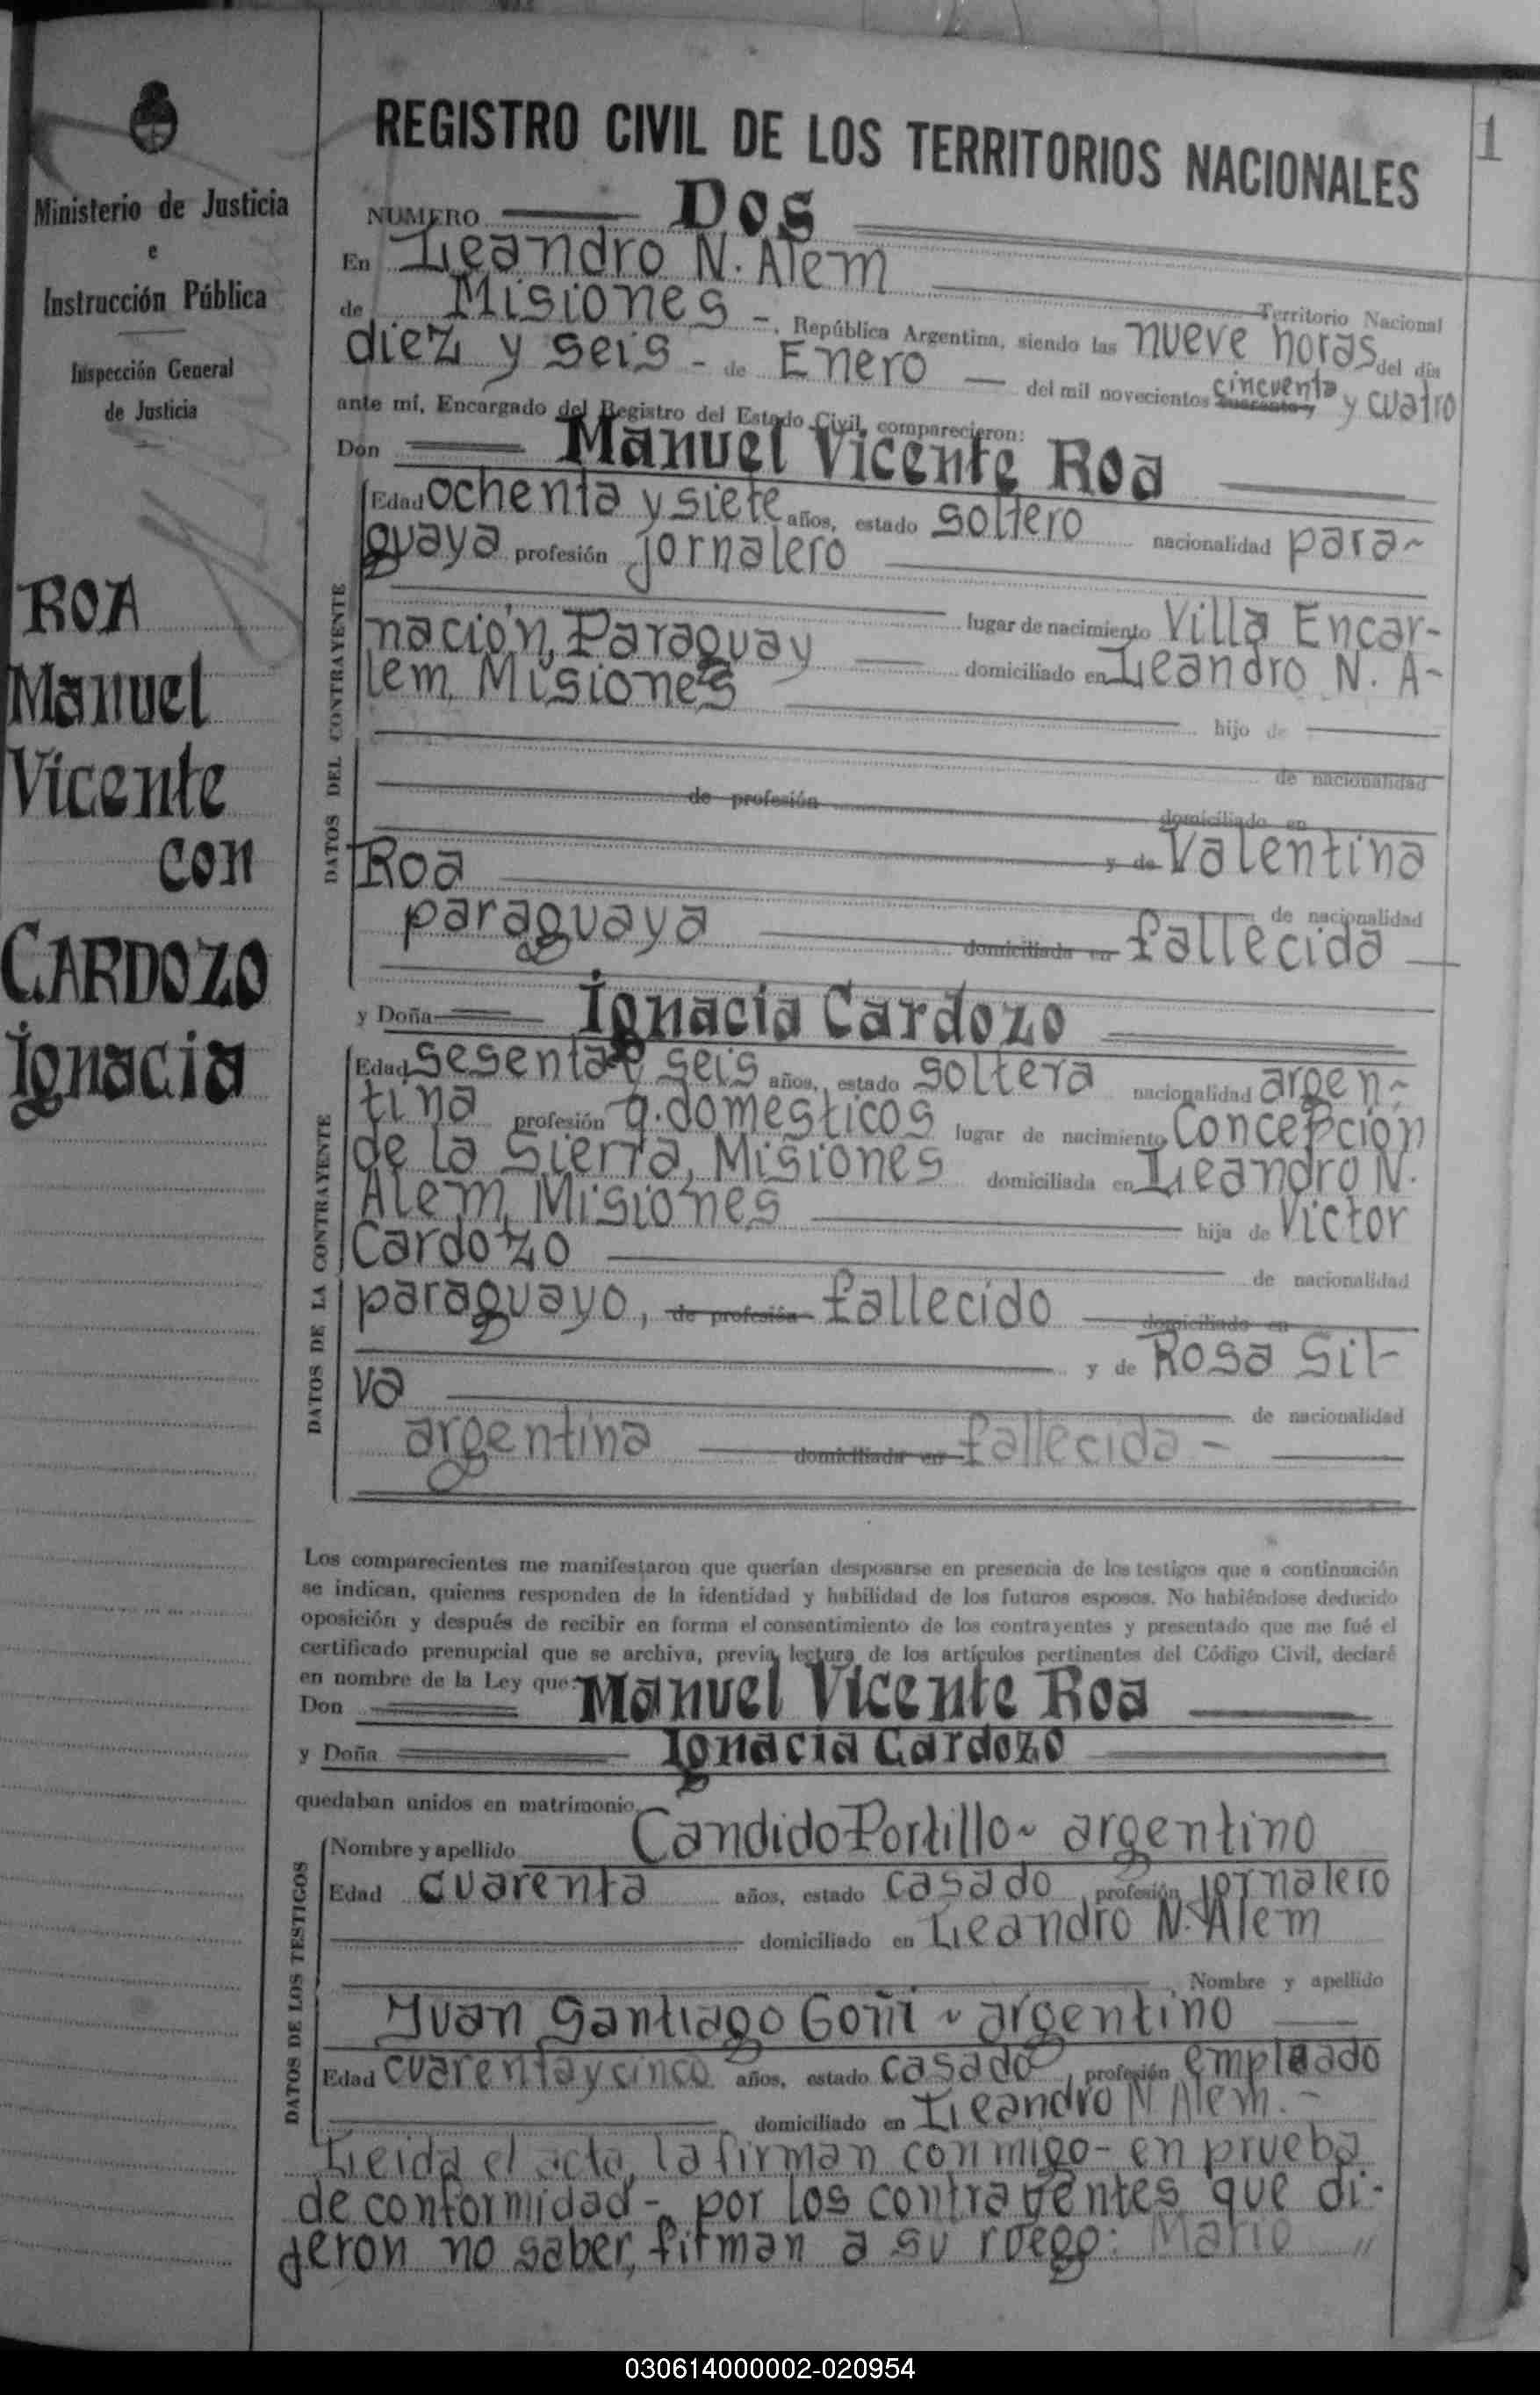 1
REGISTRO CIVIL DE LOS TERRITORIOS NACIONALES
Ministerio de Justicia
e
Instrucción Pública
Inspección General
de Justicia
ROA
Manuel
Vicente
con
CARDOZO
Ignacia
NUMERO Dos
En Leandro N. Alem
Territorio Nacional
de Misiones -, República Argentina, siendo las nueve horas del día
diez y seis - de Enero del mil novecientos cuarenta y cincuenta y cuatro
ante mí, Encargado del Registro del Estado Civil, comparecieron:
Don Manuel Vicente Roa
DATOS DEL CONTRAYENTE
Edad ochenta y siete años, estado soltero nacionalidad para-
guaya profesión jornalero
lugar de nacimiento Villa Encar-
nación, Paraguay domiciliado en Leandro N. A-
lem, Misiones
hijo de
de nacionalidad
de profesión
domiciliado en
y de Valentina
Roa
de nacionalidad
paraguaya domiciliada en fallecida
y Doña Ignacia Cardozo
DATOS DE LA CONTRAYENTE
Edad sesenta y seis años, estado soltera nacionalidad argen-
tina profesión q. domesticos lugar de nacimiento Concepción
de la Sierra, Misiones domiciliada en Leandro N.
Alem, Misiones hija de Victor
Cardozo
de nacionalidad
paraguayo, de profesión fallecido domiciliado en
y de Rosa Sil-
va
de nacionalidad
argentina domiciliada en fallecida -
Los comparecientes me manifestaron que querían desposarse en presencia de los testigos que a continuación
se indican, quienes responden de la identidad y habilidad de los futuros esposos. No habiéndose deducido
oposición y después de recibir en forma el consentimiento de los contrayentes y presentado que me fué el
certificado prenupcial que se archiva, previa lectura de los artículos pertinentes del Código Civil, declaré
en nombre de la Ley que:
Don Manuel Vicente Roa
y Doña Ignacia Cardozo
quedaban unidos en matrimonio.
DATOS DE LOS TESTIGOS
Nombre y apellido Candido Portillo ~ argentino
Edad cuarenta años, estado casado, profesión jornalero
domiciliado en Leandro N. Alem
Nombre y apellido
Juan Santiago Goñi ~ argentino
Edad cuarenta y cinco años, estado casado, profesión empleado
domiciliado en Leandro N Alem. -
Leida el acta, la firman conmigo - en prueba
de conformidad -, por los contrayentes que di-
jeron no saber, firman a su ruego: Mario "
030614000002-020954